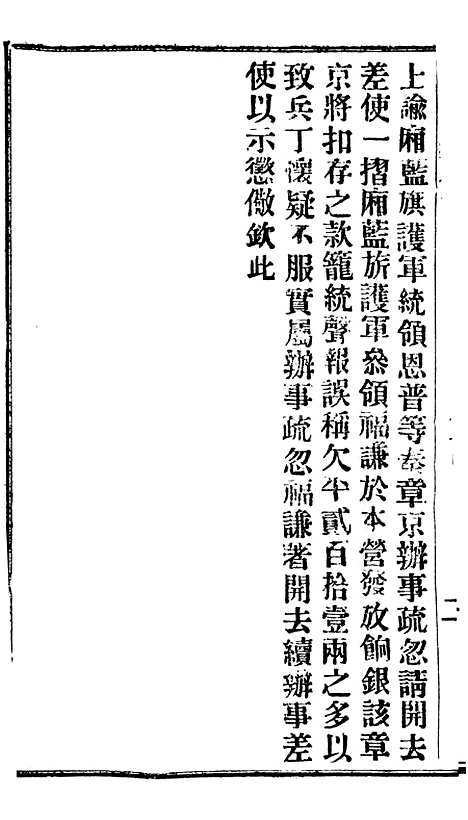 上諭廂藍旗護軍統領恩普等奏章京辦事疏忽請開去
差使一摺廂藍旂護軍叅領福謙於本營發放餉銀該章
京將扣存之款籠統聲報誤稱欠平貳百拾壹兩之多以
致兵丁懷疑不服實屬辦事疏忽福謙著開去續辦事差
使以示懲儆欽此
二